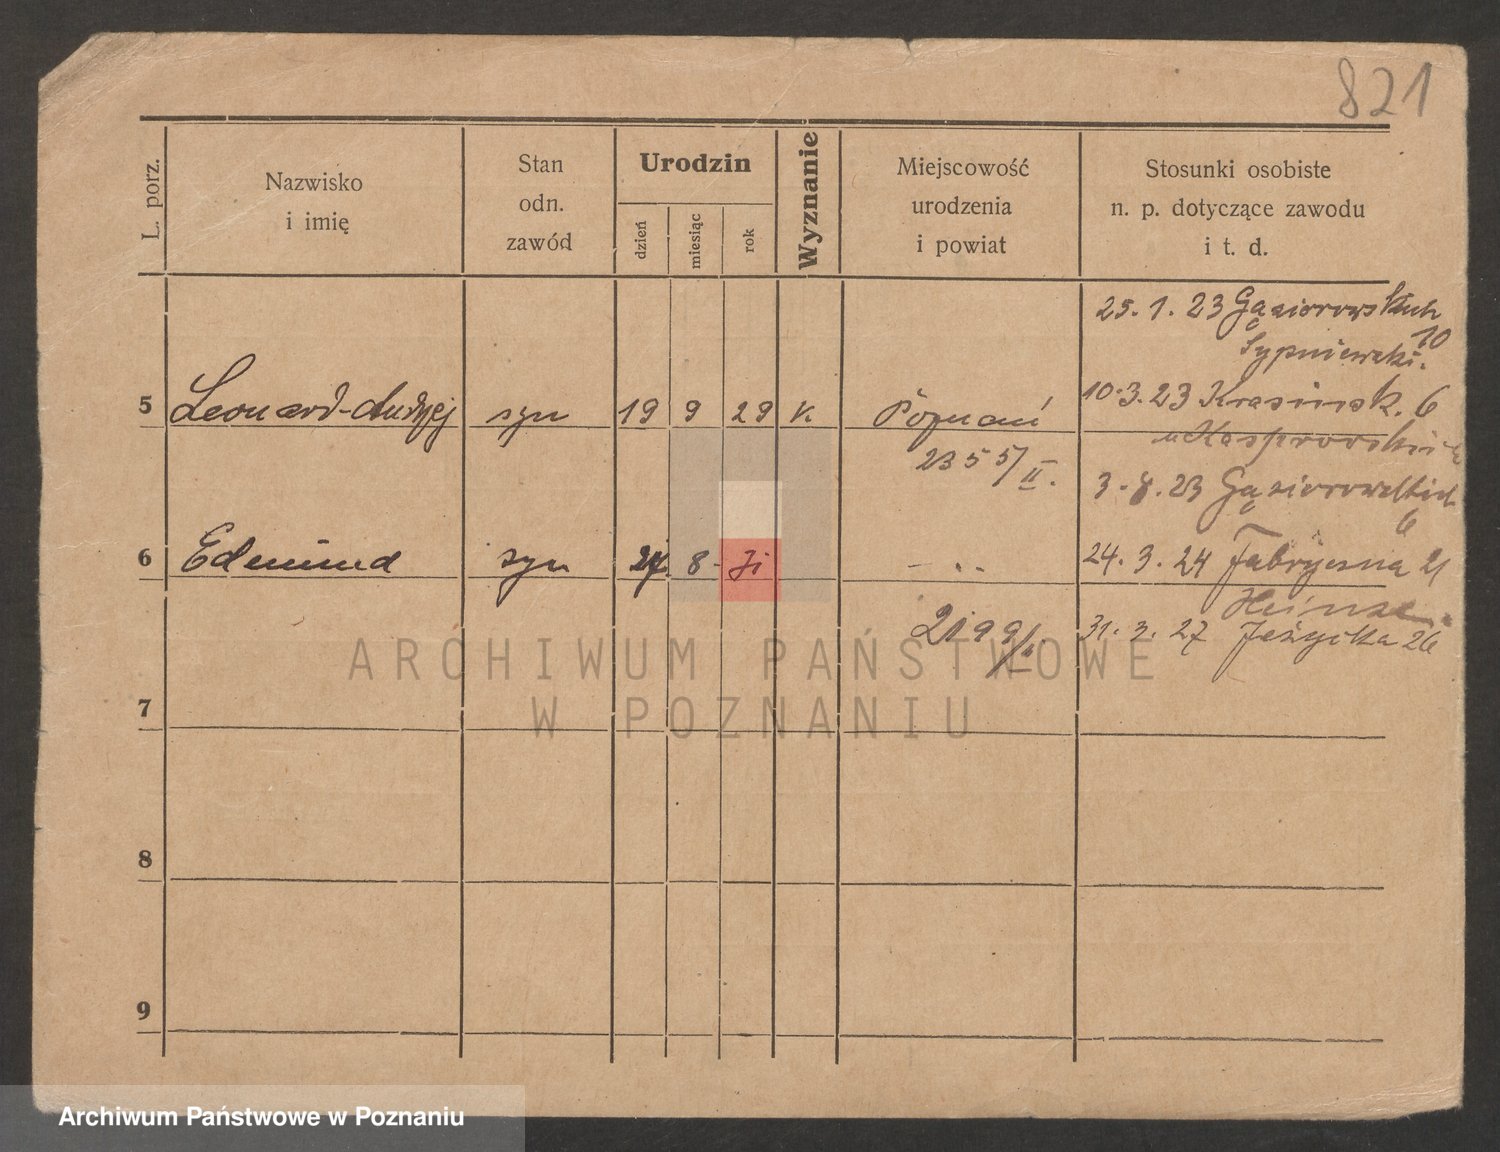 821
L. porz.
Nazwisko
i imię
Stan
odn.
zawód
Urodzin
dzień
miesiąc
rok
Wyznanie
Miejscowość
urodzenia
i powiat
Stosunki osobiste
n. p. dotyczące zawodu
i t. d.
25. 1. 23 Gąsiorowskich
10
Sypniewski.
5 Leonard-Andrzej syn 19 9 29 K Poznań
10.3.23 Krasińsk. 6
u Kasprowski
2355/II.
3. 8. 23 Gąsiorowskich
6
6 Edmund syn 8
24. 3. 24 Fabryczna 21
Heinze
2199/
31. 3. 27 Jeżycka 26
ARCHIWUM PAŃSTWOWE
W POZNANIU
7
8
9
Archiwum Państwowe w Poznaniu